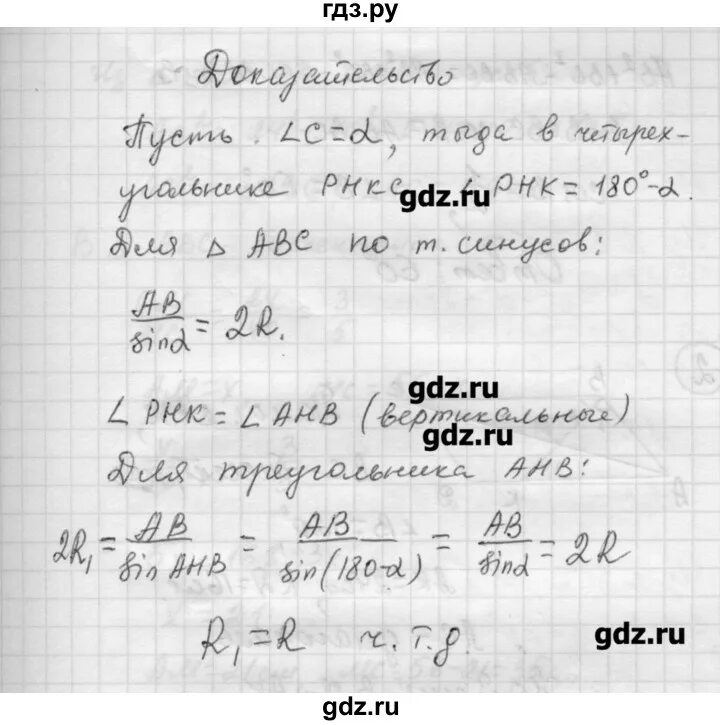 гдз.ру
Доказательство
Пусть ∠C=α, тогда в четырех-
угольнике PHKC ∠PHK=180°-α.
gdz.ru
Для △ ABC по т. синусов:
AB/sinα = 2R.
gdz.ru
∠PHK=∠AHB (вертикальные)
gdz.ru
Для треугольника AHB:
2R₁ = AB/sin AHB = AB/sin(180-α) = AB/sinα = 2R
R₁=R ч.т.д.
gdz.ru
gdz.ru